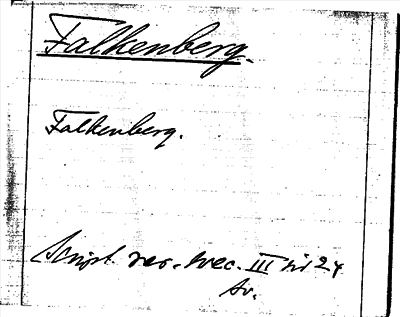 Falkenberg.
Falkenberg.
Script. rer. svec. III sid 24
Av.